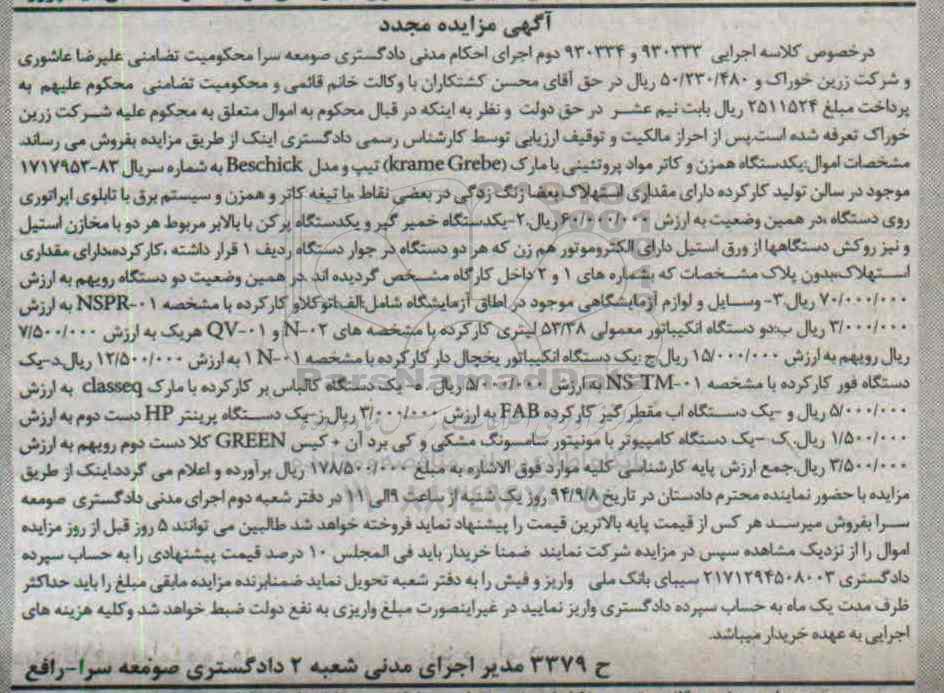 آگهی مزایده مجدد
درخصوص کلاسه اجرایی ۹۳۰۳۳۳ و ۹۳۰۳۳۴ دوم اجرای احکام مدنی دادگستری صومعه سرا محکومیت تضامنی علیرضا عاشوری
و شرکت زرین خوراک و ۵۰/۲۳۰/۴۸۰ ریال در حق آقای محسن کشتکاران با وکالت خانم قائمی و محکومیت تضامنی محکوم علیهم به
پرداخت مبلغ ۲۵۱۱۵۲۴ ریال بابت نیم عشر در حق دولت و نظر به اینکه در قبال محکوم به اموال متعلق به محکوم علیه شرکت زرین
خوراک تعرفه شده است.پس از احراز مالکیت و توقیف ارزیابی توسط کارشناس رسمی دادگستری اینک از طریق مزایده بفروش می رساند.
مشخصات اموال:یکدستگاه همزن و کاتر مواد پروتئینی با مارک (krame Grebe) تیپ و مدل Beschick به شماره سریال ۸۳-۱۷۱۷۹۵۳
موجود در سالن تولید کارکرده دارای مقداری استهلاک بعضا زنگ زدگی در بعضی نقاط با تیغه کاتر و همزن و سیستم برق با تابلوی اپراتوری
روی دستگاه ،در همین وضعیت به ارزش ۶۰/۰۰۰/۰۰۰ ریال.۲-یکدستگاه خمیر گیر و یکدستگاه پرکن با بالابر مربوط هر دو با مخازن استیل
و نیز روکش دستگاهها از ورق استیل دارای الکتروموتور هم زن که هر دو دستگاه در جوار دستگاه ردیف ۱ قرار داشته ،کارکرده،دارای مقداری
استهلاک،بدون پلاک مشخصات که بشماره های ۱ و ۲ داخل کارگاه مشخص گردیده اند. در همین وضعیت دو دستگاه رویهم به ارزش
۷۰/۰۰۰/۰۰۰ ریال.۳- وسایل و لوازم آزمایشگاهی موجود در اطاق آزمایشگاه شامل:الف:اتوکلاو کارکرده با مشخصه NSPR-۰۱ به ارزش
۳/۰۰۰/۰۰۰ ریال ب:دو دستگاه انکیباتور معمولی ۵۳/۳۸ لیتری کارکرده با مشخصه های N-۰۲ و QV-۰۱ هریک به ارزش ۷/۵۰۰/۰۰۰
ریال رویهم به ارزش ۱۵/۰۰۰/۰۰۰ ریال.ج:یک دستگاه انکیباتور یخچال دار کارکرده با مشخصه N-۰۱ ۱ به ارزش ۱۲/۵۰۰/۰۰۰ ریال.د-یک
دستگاه فور کارکرده با مشخصه NS-TM-۰۱ به ارزش ۵/۰۰۰/۰۰۰ ریال. ه- یک دستگاه کالباس بر کارکرده با مارک classeq به ارزش
۵/۰۰۰/۰۰۰ ریال و -یک دستگاه اب مقطر گیز کارکرده FAB به ارزش ۳/۰۰۰/۰۰۰ ریال.ز-یک دستگاه پرینتر HP دست دوم به ارزش
۱/۵۰۰/۰۰۰ ریال.ک -یک دستگاه کامپیوتر با مونیتور سامسونگ مشکی و کی برد آن + کیس GREEN کلا دست دوم رویهم به ارزش
۳/۵۰۰/۰۰۰ ریال.جمع ارزش پایه کارشناسی کلیه موارد فوق الاشاره به مبلغ ۱۷۸/۵۰۰/۰۰۰ ریال برآورده و اعلام می گردداینک از طریق
مزایده با حضور نماینده محترم دادستان در تاریخ ۹۴/۹/۸ روز یک شنبه از ساعت ۹الی ۱۱ در دفتر شعبه دوم اجرای مدنی دادگستری صومعه
سرا بفروش میرسد هر کس از قیمت پایه بالاترین قیمت را پیشنهاد نماید فروخته خواهد شد طالبین می توانند ۵ روز قبل از روز مزایده
اموال را از نزدیک مشاهده سپس در مزایده شرکت نمایند ضمنا خریدار باید فی المجلس ۱۰ درصد قیمت پیشنهادی را به حساب سپرده
دادگستری ۲۱۷۱۲۹۴۵۰۸۰۰۳ سیبای بانک ملی واریز و فیش را به دفتر شعبه تحویل نماید ضمنابرنده مزایده مابقی مبلغ را باید حداکثر
ظرف مدت یک ماه به حساب سپرده دادگستری واریز نمایید در غیراینصورت مبلغ واریزی به نفع دولت ضبط خواهد شد وکلیه هزینه های
اجرایی به عهده خریدار میباشد.
ح ۳۳۷۹ مدیر اجرای مدنی شعبه ۲ دادگستری صومعه سرا-رافع